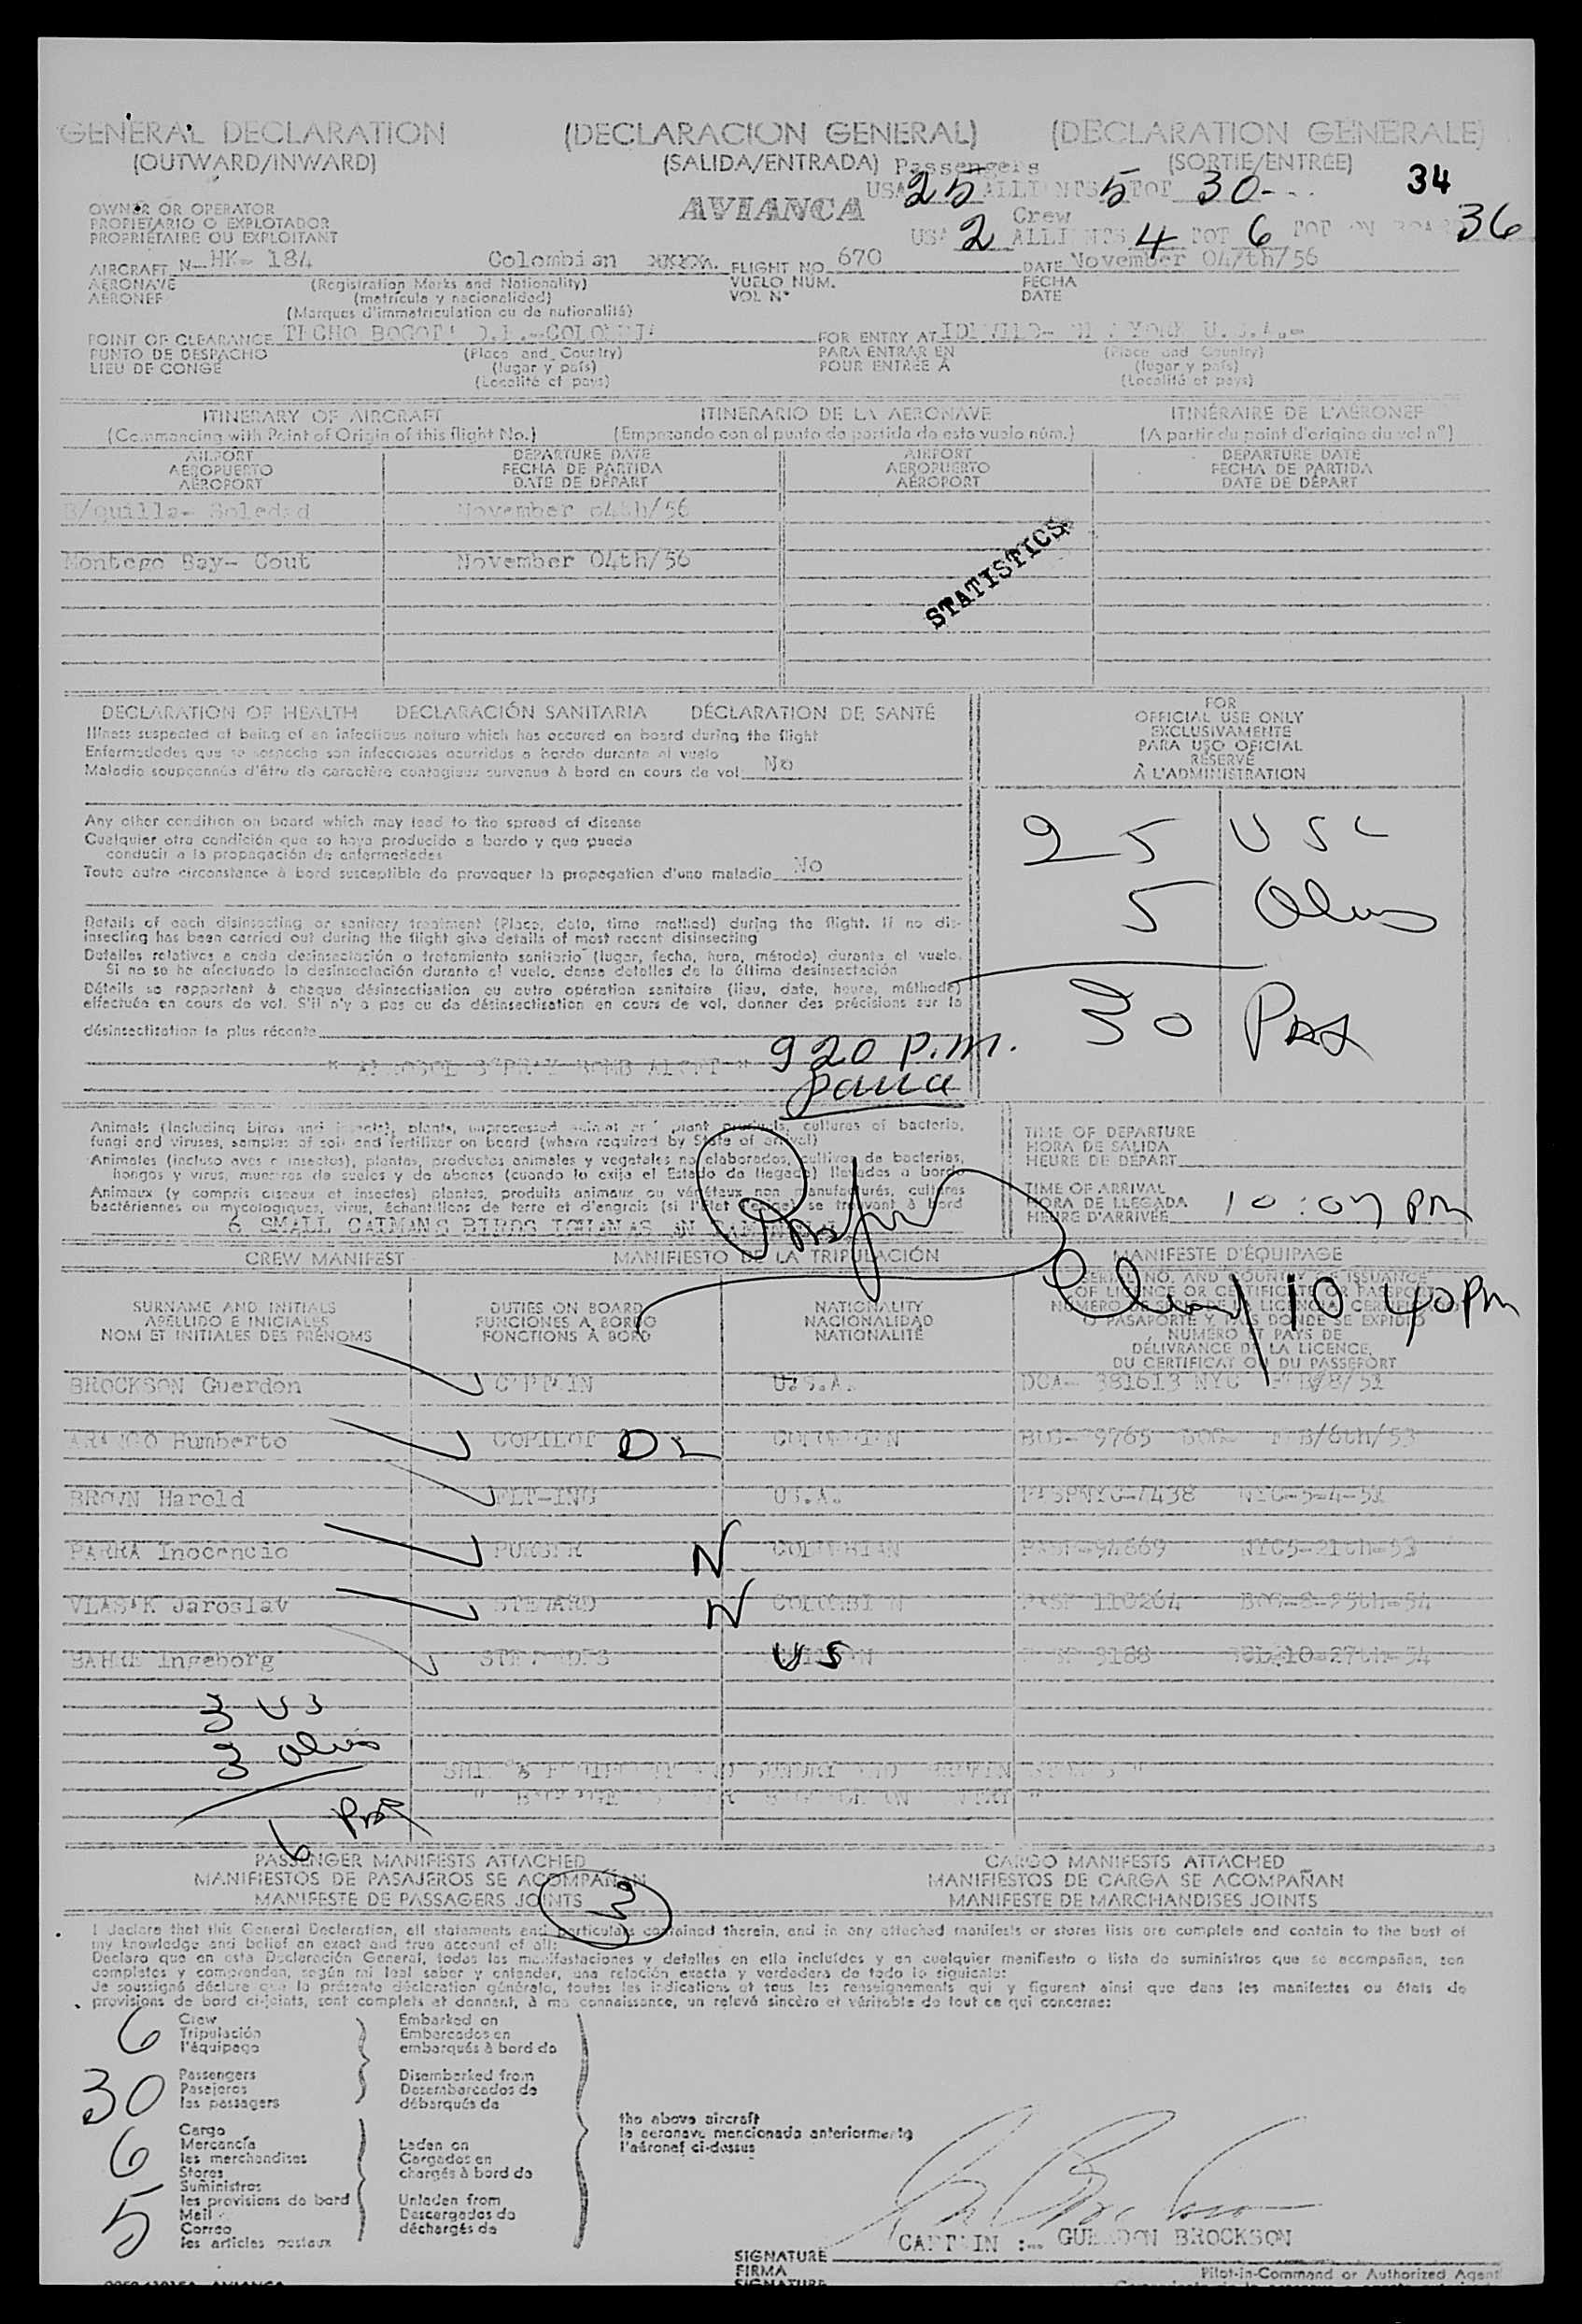 GENERAL DECLARATION (DECLARACION GENERAL) (DÉCLARATION GÉNÉRALE)
(OUTWARD/INWARD) (SALIDA/ENTRADA) (SORTIE/ENTRÉE)
Passengers
USA 25 5 TOT 30- 34
AVIANCA
Crew
2 4 TOT 6 36
OWNER OR OPERATOR
PROPIETARIO O EXPLOTADOR
PROPRIÉTAIRE OU EXPLOITANT
AIRCRAFT N- HK- 184 Colombian FLIGHT NO. 670 DATE November 04/th/56
AERONAVE (Registration Marks and Nationality) VUELO NUM. FECHA
AÉRONEF (matrícula y nacionalidad) VOL N° DATE
(Marques d'immatriculation ou de nationalité)
POINT OF CLEARANCE TECHO BOGOTA D.E.-COLOMBIA FOR ENTRY AT IDLEWILD- NEW YORK U.S.A.-
PUNTO DE DESPACHO (Place and Country) PARA ENTRAR EN (Place and Country)
LIEU DE CONGÉ (lugar y país) POUR ENTRÉE A (lugar y país)
(Localité et pays) (Localité et pays)
ITINERARY OF AIRCRAFT ITINERARIO DE LA AERONAVE ITINÉRAIRE DE L'AÉRONEF
(Commencing with Point of Origin of this flight No.) (Empezando con el punto de partida de este vuelo núm.) (A partir du point d'origine du vol n°)
AIRPORT DEPARTURE DATE AIRPORT DEPARTURE DATE
AEROPUERTO FECHA DE PARTIDA AEROPUERTO FECHA DE PARTIDA
AÉROPORT DATE DE DÉPART AÉROPORT DATE DE DÉPART
B/quilla- Soledad November 04th/56
Montego Bay- Cout November 04th/56
STATISTICS
DECLARATION OF HEALTH DECLARACIÓN SANITARIA DÉCLARATION DE SANTÉ
Illness suspected of being of an infectious nature which has occured on board during the flight
Enfermedades que se sospecha son infecciosas ocurridas a bordo durante el vuelo
Maladie soupçonnée d'être de caractère contagieux survenue à bord en cours de vol No
Any other condition on board which may lead to the spread of disease
Cualquier otra condición que se haya producido a bordo y que pueda
conducir a la propagación de enfermedades
Toute autre circonstance à bord susceptible de provoquer la propagation d'une maladie No
Details of each disinsecting or sanitary treatment (Place, date, time method) during the flight. If no dis-
insecting has been carried out during the flight give details of most recent disinsecting
Detalles relativos a cada desinsectación o tratamiento sanitario (lugar, fecha, hora, método) durante el vuelo.
Si no se ha efectuado la desinsectación durante el vuelo, dense detalles de la última desinsectación
Détails se rapportant à chaque désinsectisation ou autre opération sanitaire (lieu, date, heure, méthode)
effectuée en cours de vol. S'il n'y a pas eu de désinsectisation en cours de vol, donner des précisions sur la
désinsectisation la plus récente
" AEROSOL SPRAY BOMB ALOFT " 920 P.M.
FOR
OFFICIAL USE ONLY
EXCLUSIVAMENTE
PARA USO OFICIAL
RÉSERVÉ
À L'ADMINISTRATION
25 USC
5 Aliens
30 PAX
Animals (including birds and insects), plants, unprocessed animal and plant products, cultures of bacteria,
fungi and viruses, samples of soil and fertilizer on board (where required by State of arrival)
Animales (incluso aves e insectos), plantas, productos animales y vegetales no elaborados, cultivos de bacterias,
hongos y virus, muestras de suelos y de abonos (cuando lo exija el Estado de llegada) llevados a bordo
Animaux (y compris oiseaux et insectes) plantes, produits animaux ou végétaux non manufacturés, cultures
bactériennes ou mycologiques, virus, échantillons de terre et d'engrais (si l'État l'exige) se trouvant à bord
6 SMALL CAIMANS BIRDS IGUANAS
TIME OF DEPARTURE
HORA DE SALIDA
HEURE DE DÉPART
TIME OF ARRIVAL
HORA DE LLEGADA 10:07 PM
HEURE D'ARRIVÉE
CREW MANIFEST MANIFIESTO DE LA TRIPULACIÓN MANIFESTE D'ÉQUIPAGE
10 40 PM
SURNAME AND INITIALS DUTIES ON BOARD NATIONALITY SERIAL NO. AND COUNTRY OF ISSUANCE
APELLIDO E INICIALES FUNCIONES A BORDO NACIONALIDAD OF LICENCE OR CERTIFICATE OR PASSPORT
NOM ET INITIALES DES PRÉNOMS FONCTIONS À BORD NATIONALITÉ NÚMERO DE SERIE DE LICENCIA, CERTIFICADO
O PASAPORTE Y PAÍS DONDE SE EXPIDIÓ
NUMÉRO ET PAYS DE
DÉLIVRANCE DE LA LICENCE,
DU CERTIFICAT OU DU PASSEPORT
BROCKSON Guerdon CAPTAIN U.S.A. DCA- 381613 NYC FEB/8/52
ARANGO Humberto COPILOT DL COLOMBIAN BOG- 9765 BOG- FEB/6th/53
BROWN Harold FLT-ENG US.A. PASPNYC-7438 NYC-5-4-52
PARRA Inocencio PURSER N COLOMBIAN PASP-94669 NYC5-21th-53
VLASAK Jaroslav STEWARD N COLOMBIAN PASP 110264 BOG-8-25th-54
BAHRE Ingeborg STEWARDES US PASP 3188 10-27th-54
3 US
3 Aliens
6 PAX
PASSENGER MANIFESTS ATTACHED CARGO MANIFESTS ATTACHED
MANIFIESTOS DE PASAJEROS SE ACOMPAÑAN 3 MANIFIESTOS DE CARGA SE ACOMPAÑAN
MANIFESTE DE PASSAGERS JOINTS MANIFESTE DE MARCHANDISES JOINTS
I declare that this General Declaration, all statements and particulars contained therein, and in any attached manifests or stores lists are complete and contain to the best of
my knowledge and belief an exact and true account of all:
Declaro que en esta Declaración General, todas las manifestaciones y detalles en ella incluídos y en cualquier manifiesto o lista de suministros que se acompañan, son
completos y comprenden, según mi leal saber y entender, una relación exacta y verdadera de todo lo siguiente:
Je soussigné déclare que la présente déclaration générale, toutes les indications et tous les renseignements qui y figurent ainsi que dans les manifestes ou états de
provisions de bord ci-joints, sont complets et donnent, à ma connaissance, un relevé sincère et véritable de tout ce qui concerne:
6 Crew Embarked on
Tripulación Embarcados en
l'équipage embarqués à bord de
30 Passengers Disembarked from
Pasajeros Desembarcados de
les passagers débarqués de
the above aircraft
la aeronave mencionada anteriormente
l'aéronef ci-dessus
6 Cargo
Mercancía Laden on
les merchandises Cargados en
Stores chargés à bord de
Suministros
les provisions de bord Unladen from
5 Mail Descargados de
Correo déchargés de
les articles postaux
CAPTAIN :- GUERDON BROCKSON
SIGNATURE
FIRMA Pilot-in-Command or Authorized Agent
SIGNATURE